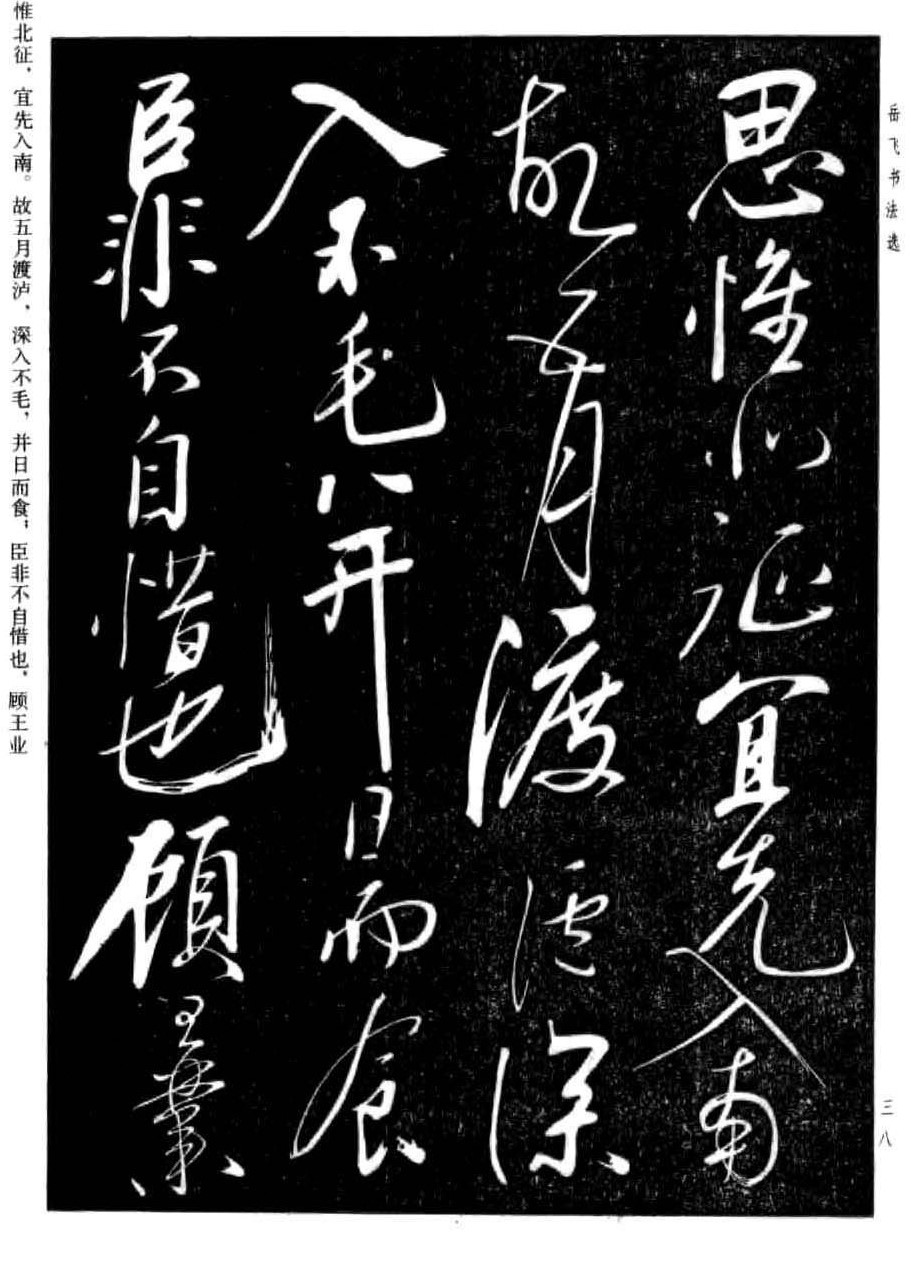 岳飞书法选
思惟北征宜先入南
故五月渡泸深
入不毛并日而食
臣非不自惜也顾王业
惟北征，宜先入南。故五月渡泸，深入不毛，并日而食；臣非不自惜也，顾王业
三八